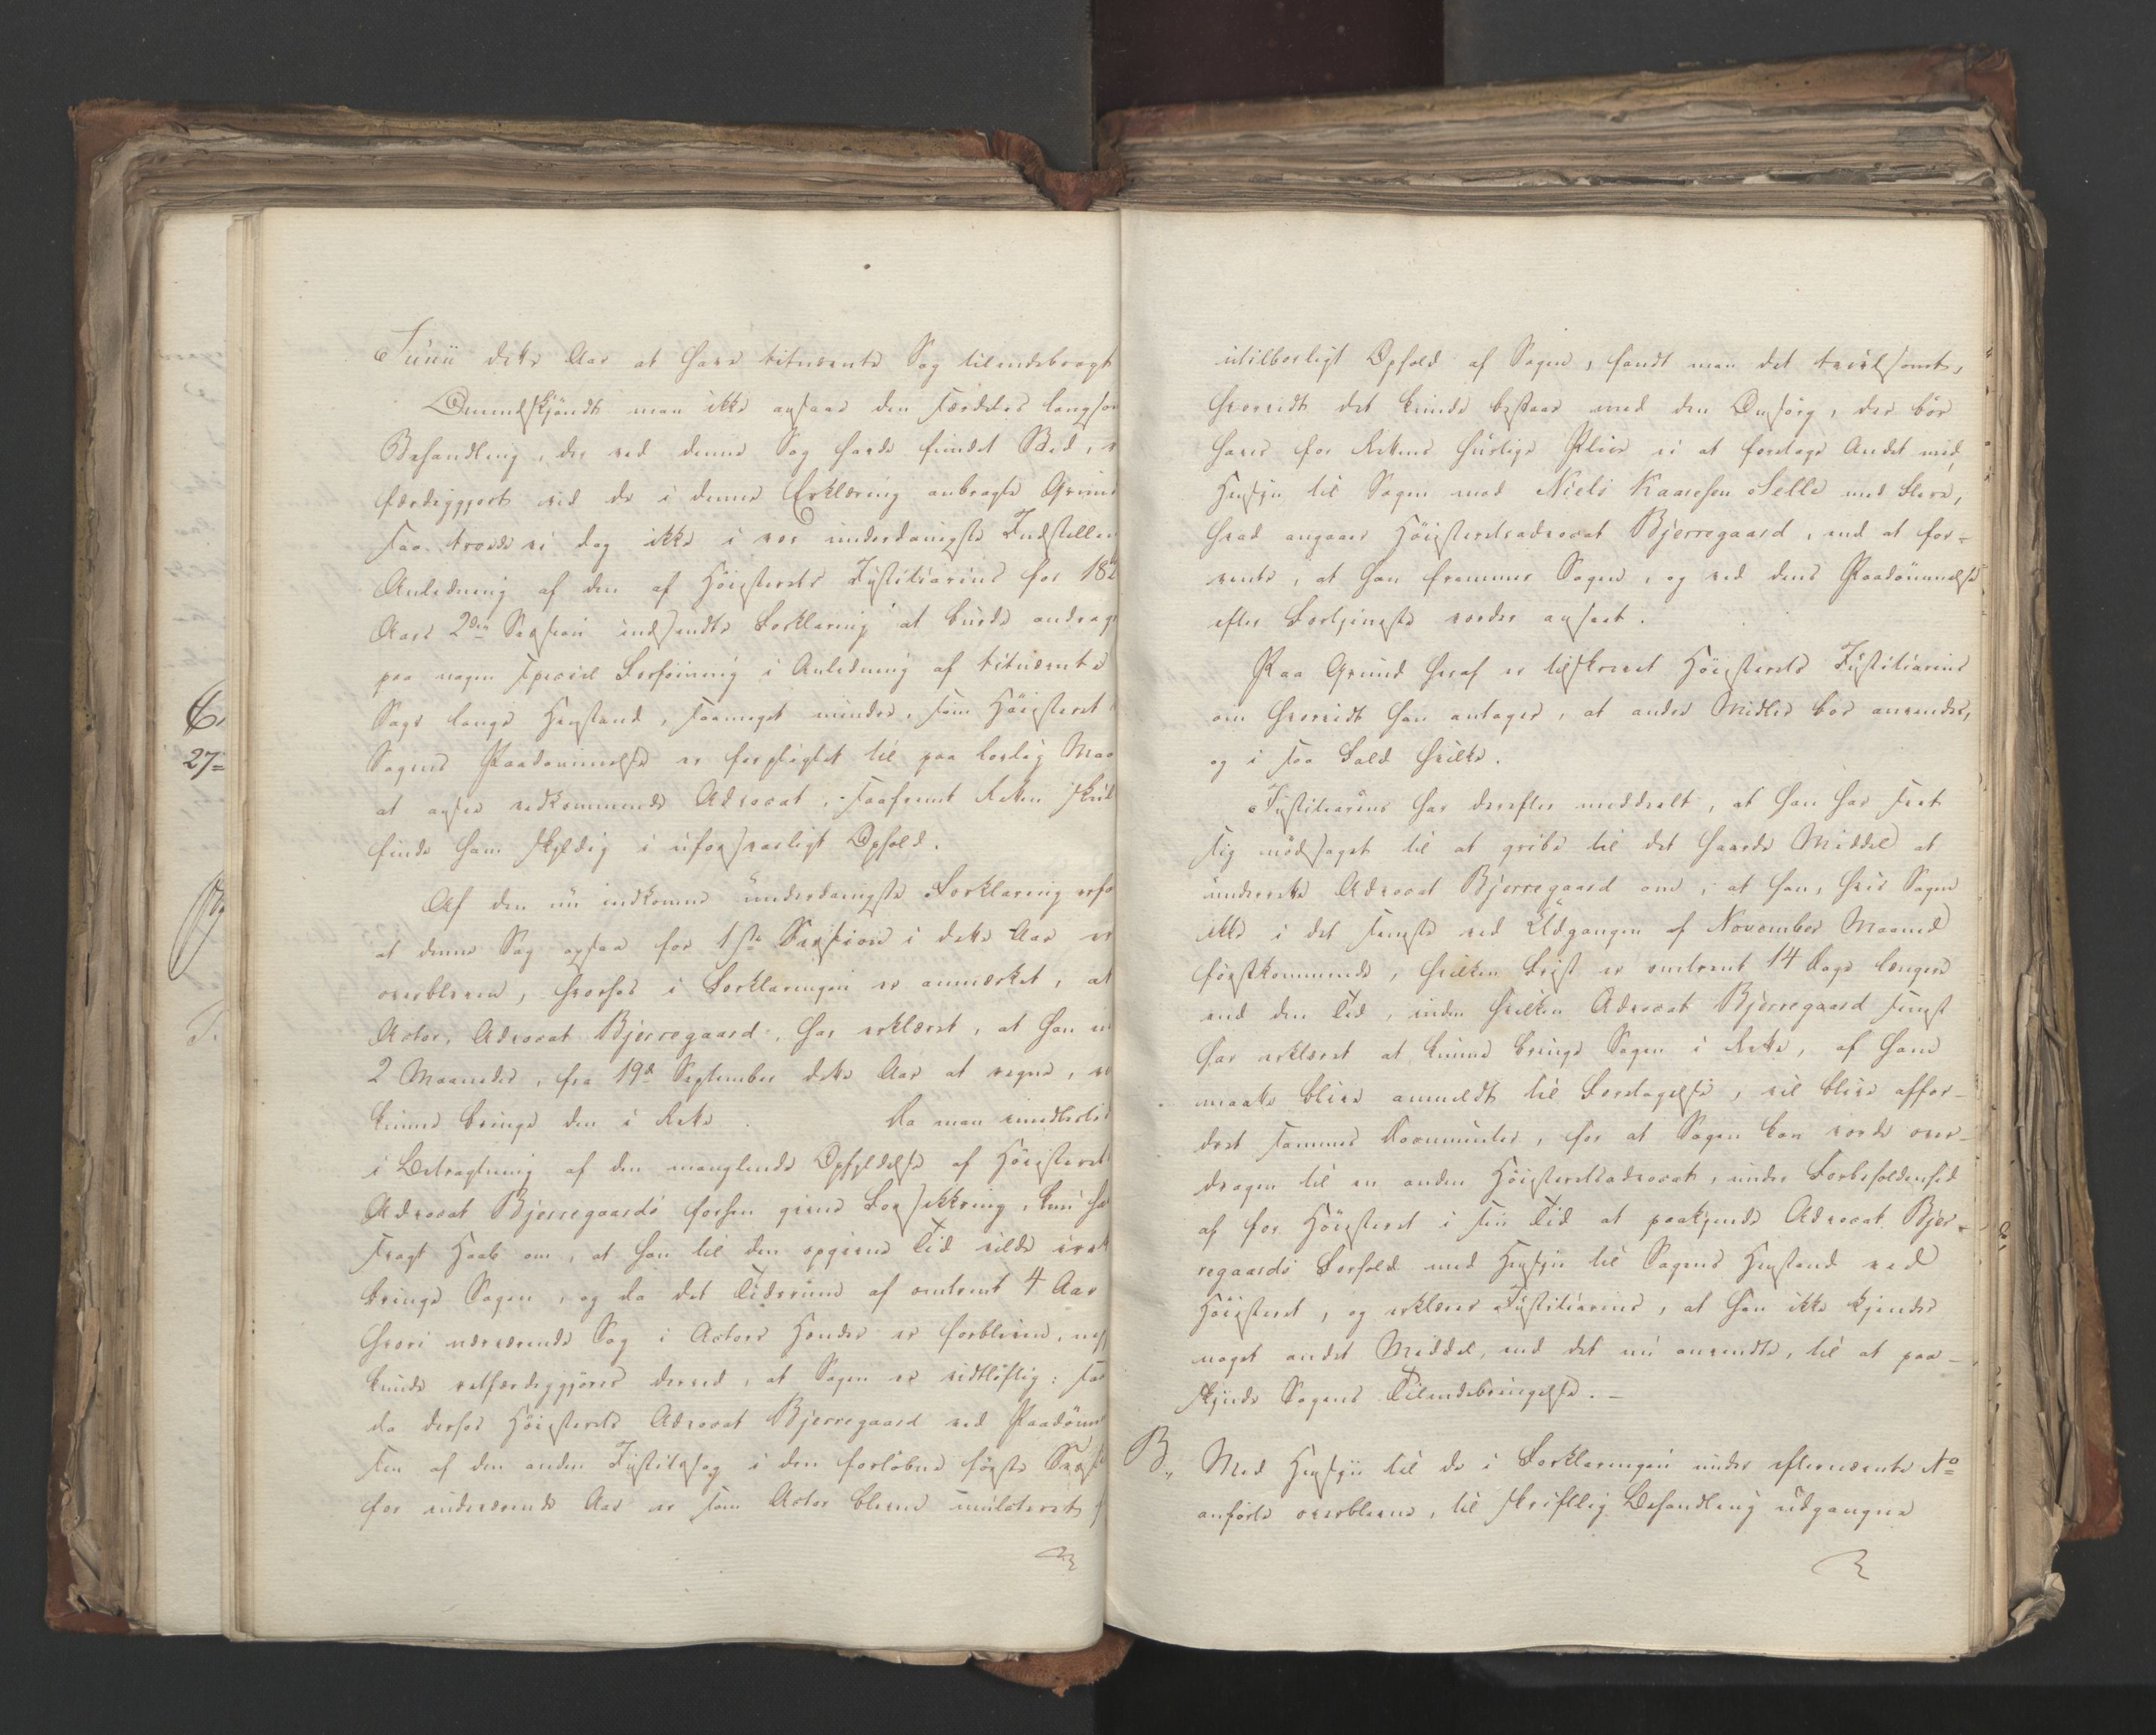 Junii dette Aar at have bemeldte Sag tilendebragt
Omendskjøndt man ikke ansaae den særdeles langso
Behandling, der ved denne Sag havde fundet Sted,
færdiggjort ved de i denne Erklæring anbragte Grun
saa troede vi dog ikke i vor underdanigste Indstillin
Anledning af den af Høiesterets Justitiarius for 182
Aars 2den Session indsendte Forklaring at burde andrage
paa nogen speciel Forføining i Anledning af bemeldte
Sags lange Henstand, saameget mindre, som Høiesteret
Sagens Paadømmelse er forpligtet til paa lovlig Maa
at ansee vedkommende Advocat, saafremt Retten skul
finde ham skyldig i uforsvarligt Ophold.
Af den nu indkomne underdanigste Forklaring erfa
at denne Sag ogsaa for 1ste Session i dette Aar er
overbleven, hvorhos i Forklaringen er anmærket, at
Actor, Advocat Bjerregaard, har erklæret, at han in
2 Maaneder, fra 19de September dette Aar at regne,
kunne bringe den i Rette. Da man imidlertid
i Betragtning af den manglende Opfyldelse af Høiesteret
Advocat Bjerregaards forhen givne Forsikkring, kun ha
svagt Haab om, at han til den opgivne Tid vilde ivæ
bringe Sagen, og da det Tidsrum af omtrent 4 Aar
hvori nærværende Sag i Actors Hænder er forbleven,
kunde retfærdiggjøres derved, at Sagen er vidtløftig;
da derfor Høiesterets Advocat Bjerregaard ved Paadømm
sen af den anden Justitssag i den forløbne første Sess
for indeværende Aar er som Actor bleven mulcteret
27
utilbørligt Ophold af Sagen, fandt man det tvivlsomt,
hvorvidt det kunde bestaae med den Omsorg, der bør
haves for Rettens hurtige Pleie ei at foretage Andet med
Hensyn til Sagen mod Niels Kaaresen Selle med Flere,
hvad angaaer Høiesteretsadvocat Bjerregaard, end at for-
vente, at han fremmer Sagen, og ved dens Paadømmelse
efter Fortjeneste vorder anseet.
Paa Grund heraf er tilskrevet Høiesterets Justitiarius
om hvorvidt han antager, at andre Midler bør anvendes,
og i saa Fald hvilke.
Justitiarius har derefter meddeelt, at han har seet
sig nødsaget til at gribe til det haarde Middel at
underrette Advocat Bjerregaard om, at han, hvis Sagen
ikke i det seneste ved Udgangen af November Maaned
førstkommende, hvilken Frist er omtrent 14 Dage længere
end den Tid, inden hvilken Advocat Bjerregaard senest
har erklæret at kunne bringe Sagen i Rette, af ham
maatte blive anmeldt til Foretagelse, vil blive affor-
dret sammes Documenter, for at Sagen kan vorde over-
dragen til en anden Høiesteretsadvocat, under Forbeholdenhed
af for Høiesteret i sin Tid at paakjende Advocat Bjer-
regaards Forhold med Hensyn til Sagens Henstand ved
Høiesteret, og erklærer Justitiarius, at han ikke kjender
noget andet Middel, end det nu anvendte, til at paa-
skynde Sagens Tilendebringelse. —
B. Med Hensyn til de i Forklaringen under efternævnte No
anførte overblevne, til skriftlig Behandling udgangne